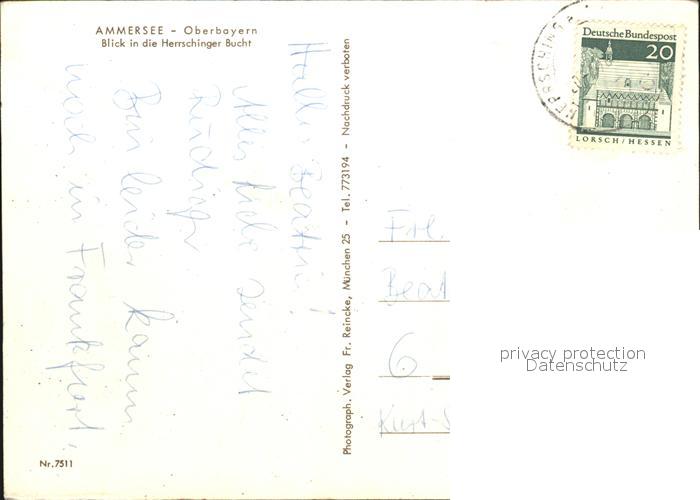 AMMERSEE – Oberbayern
Blick in die Herrschinger Bucht
Hallo Beatrix!
Alles Liebe sendet
Rüdiger
Bin leider kaum
noch in Frankfurt,
Nr. 7511
Photograph. Verlag Fr. Reincke, München 25 – Tel. 773194 – Nachdruck verboten
HERRSCHING
Deutsche Bundespost
20
LORSCH/HESSEN
Frl.
Beat
6
Kurt-S
privacy protection
Datenschutz